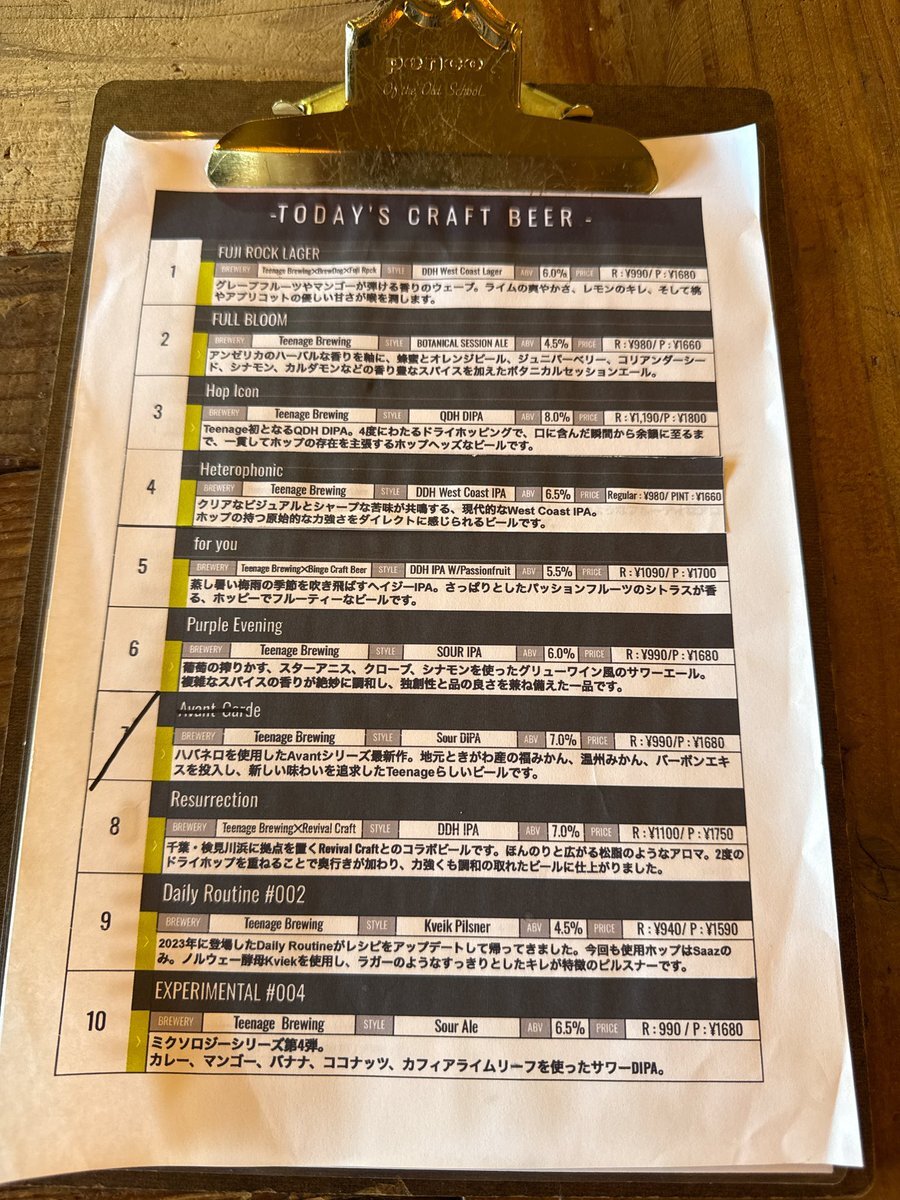 penco
Of the Old School
-TODAY'S CRAFT BEER -
1
FUJI ROCK LAGER
BREWERY Teenage Brewing×BrewDog×Fuji Rock STYLE DDH West Coast Lager ABV 6.0% PRICE R : ¥990/ P : ¥1680
グレープフルーツやマンゴーが弾ける香りのウェーブ。ライムの爽やかさ、レモンのキレ、そして桃
やアプリコットの優しい甘さが喉を潤します。
2
FULL BLOOM
Teenage Brewing STYLE BOTANICAL SESSION ALE ABV 4.5% PRICE R : ¥980/ P : ¥1660
アンゼリカのハーバルな香りを軸に、蜂蜜とオレンジピール、ジュニパーベリー、コリアンダーシー
ド、シナモン、カルダモンなどの香り豊なスパイスを加えたボタニカルセッションエール。
3
Hop Icon
BREWERY Teenage Brewing STYLE QDH DIPA ABV 8.0% PRICE R : ¥1,190/P : ¥1800
Teenage初となるQDH DIPA。4度にわたるドライホッピングで、口に含んだ瞬間から余韻に至るま
で、一貫してホップの存在を主張するホップヘッズなビールです。
4
Heterophonic
BREWERY Teenage Brewing STYLE DDH West Coast IPA ABV 6.5% PRICE Regular : ¥980/ PINT : ¥1660
クリアなビジュアルとシャープな苦味が共鳴する、現代的なWest Coast IPA。
ホップの持つ原始的な力強さをダイレクトに感じられるビールです。
5
for you
BREWERY Teenage Brewing×Binge Craft Beer STYLE DDH IPA W/Passionfruit ABV 5.5% PRICE R : ¥1090/ P : ¥1700
蒸し暑い梅雨の季節を吹き飛ばすヘイジーIPA。さっぱりとしたパッションフルーツのシトラスが香
る、ホッピーでフルーティーなビールです。
6
Purple Evening
BREWERY Teenage Brewing STYLE SOUR IPA ABV 6.0% PRICE R : ¥990/P : ¥1680
葡萄の搾りかす、スターアニス、クローブ、シナモンを使ったグリューワイン風のサワーエール。
複雑なスパイスの香りが絶妙に調和し、独創性と品の良さを兼ね備えた一品です。
7
Avant-Garde
BREWERY Teenage Brewing STYLE Sour DIPA ABV 7.0% PRICE R : ¥990/P : ¥1680
ハバネロを使用したAvantシリーズ最新作。地元ときがわ産の福みかん、温州みかん、バーボンエキ
スを投入し、新しい味わいを追求したTeenageらしいビールです。
8
Resurrection
BREWERY Teenage Brewing×Revival Craft STYLE DDH IPA ABV 7.0% PRICE R : ¥1100/ P : ¥1750
千葉・検見川浜に拠点を置くRevival Craftとのコラボビールです。ほんのりと広がる松脂のようなアロマ。2度の
ドライホップを重ねることで奥行きが加わり、力強くも調和の取れたビールに仕上がりました。
9
Daily Routine #002
BREWERY Teenage Brewing STYLE Kveik Pilsner ABV 4.5% PRICE R : ¥940/ P : ¥1590
2023年に登場したDaily Routineがレシピをアップデートして帰ってきました。今回も使用ホップはSaazの
み。ノルウェー酵母Kviekを使用し、ラガーのようなすっきりとしたキレが特徴のピルスナーです。
10
EXPERIMENTAL #004
BREWERY Teenage Brewing STYLE Sour Ale ABV 6.5% PRICE R : 990 / P : ¥1680
ミクソロジーシリーズ第4弾。
カレー、マンゴー、バナナ、ココナッツ、カフィアライムリーフを使ったサワーDIPA。